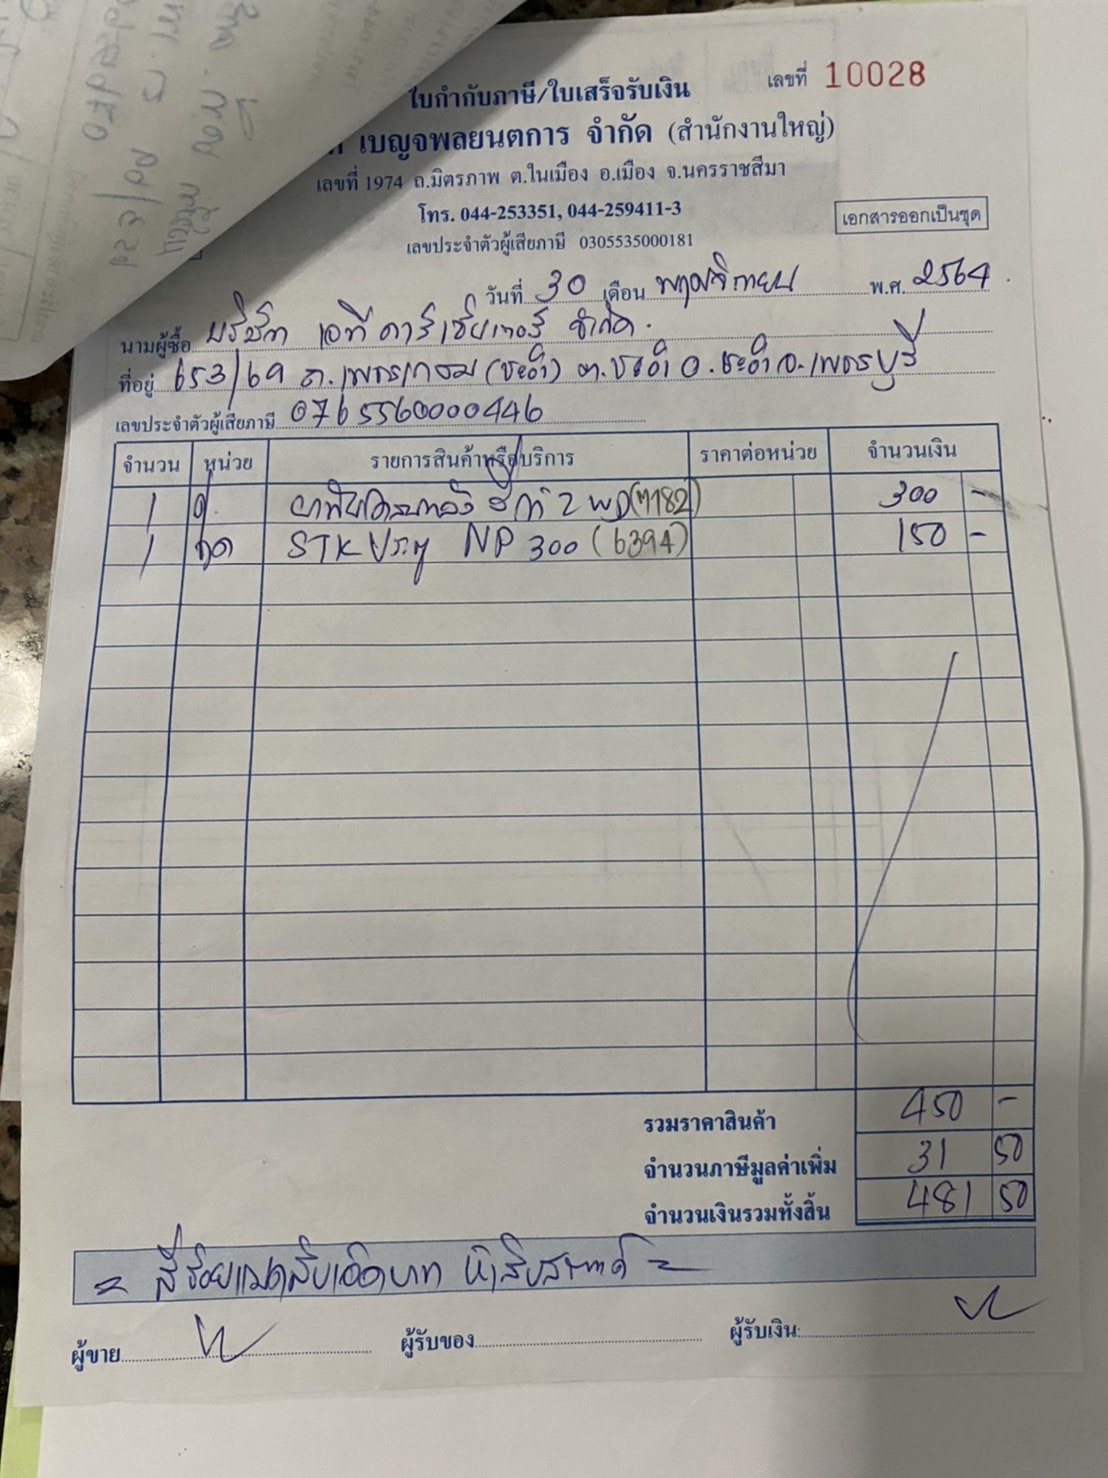 ใบกำกับภาษี/ใบเสร็จรับเงิน เลขที่ 10028
เบญจพลยนตการ จำกัด (สำนักงานใหญ่)
เลขที่ 1974 ถ.มิตรภาพ ต.ในเมือง อ.เมือง จ.นครราชสีมา
โทร. 044-253351, 044-259411-3
เอกสารออกเป็นชุด
เลขประจำตัวผู้เสียภาษี 0305535000181
วันที่ 30 เดือน พฤศจิกายน พ.ศ. 2564
นามผู้ซื้อ บริษัท เอที คาร์เซ็นเตอร์ จำกัด.
ที่อยู่ 653/69 ถ.เพชรเกษม (ชะอำ) ต.ชะอำ อ.ชะอำ จ.เพชรบุรี
เลขประจำตัวผู้เสียภาษี 0765560000446
จำนวน หน่วย รายการสินค้าหรือบริการ ราคาต่อหน่วย จำนวนเงิน
1 300 -
1 ชุด STK ประตู NP 300 (6394) 150 -
รวมราคาสินค้า 450 -
จำนวนภาษีมูลค่าเพิ่ม 31 50
จำนวนเงินรวมทั้งสิ้น 481 50
= สี่ร้อยแปดสิบเอ็ดบาท ห้าสิบสตางค์ =
ผู้ขาย ผู้รับของ ผู้รับเงิน